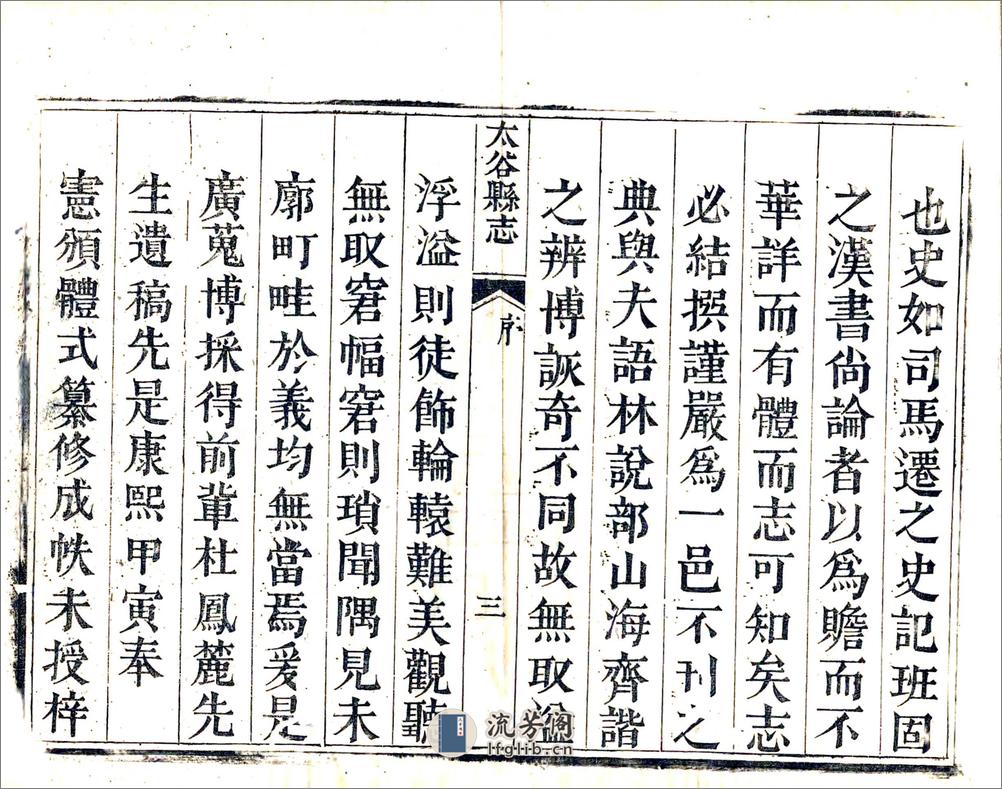 也史如司馬遷之史記班固
之漢書尙論者以爲贍而不
華詳而有體而志可知矣志
必結撰謹嚴爲一邑不刊之
典與夫語林說部山海齊諧
之辨博詼奇不同故無取溢
太谷縣志
序
三
浮溢則徒飾輪轅難美觀聽
無取窘幅窘則瑣聞隅見未
廓町畦於義均無當焉爰是
廣蒐博採得前輩杜鳳麓先
生遺稿先是康熙甲寅奉
憲頒體式纂修成帙未授梓
流芳阁
lfglib.cn